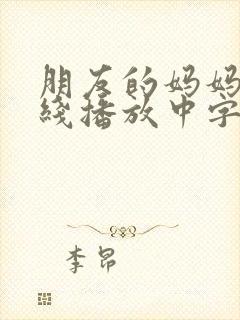 朋友的妈妈
线播放中字
李昂